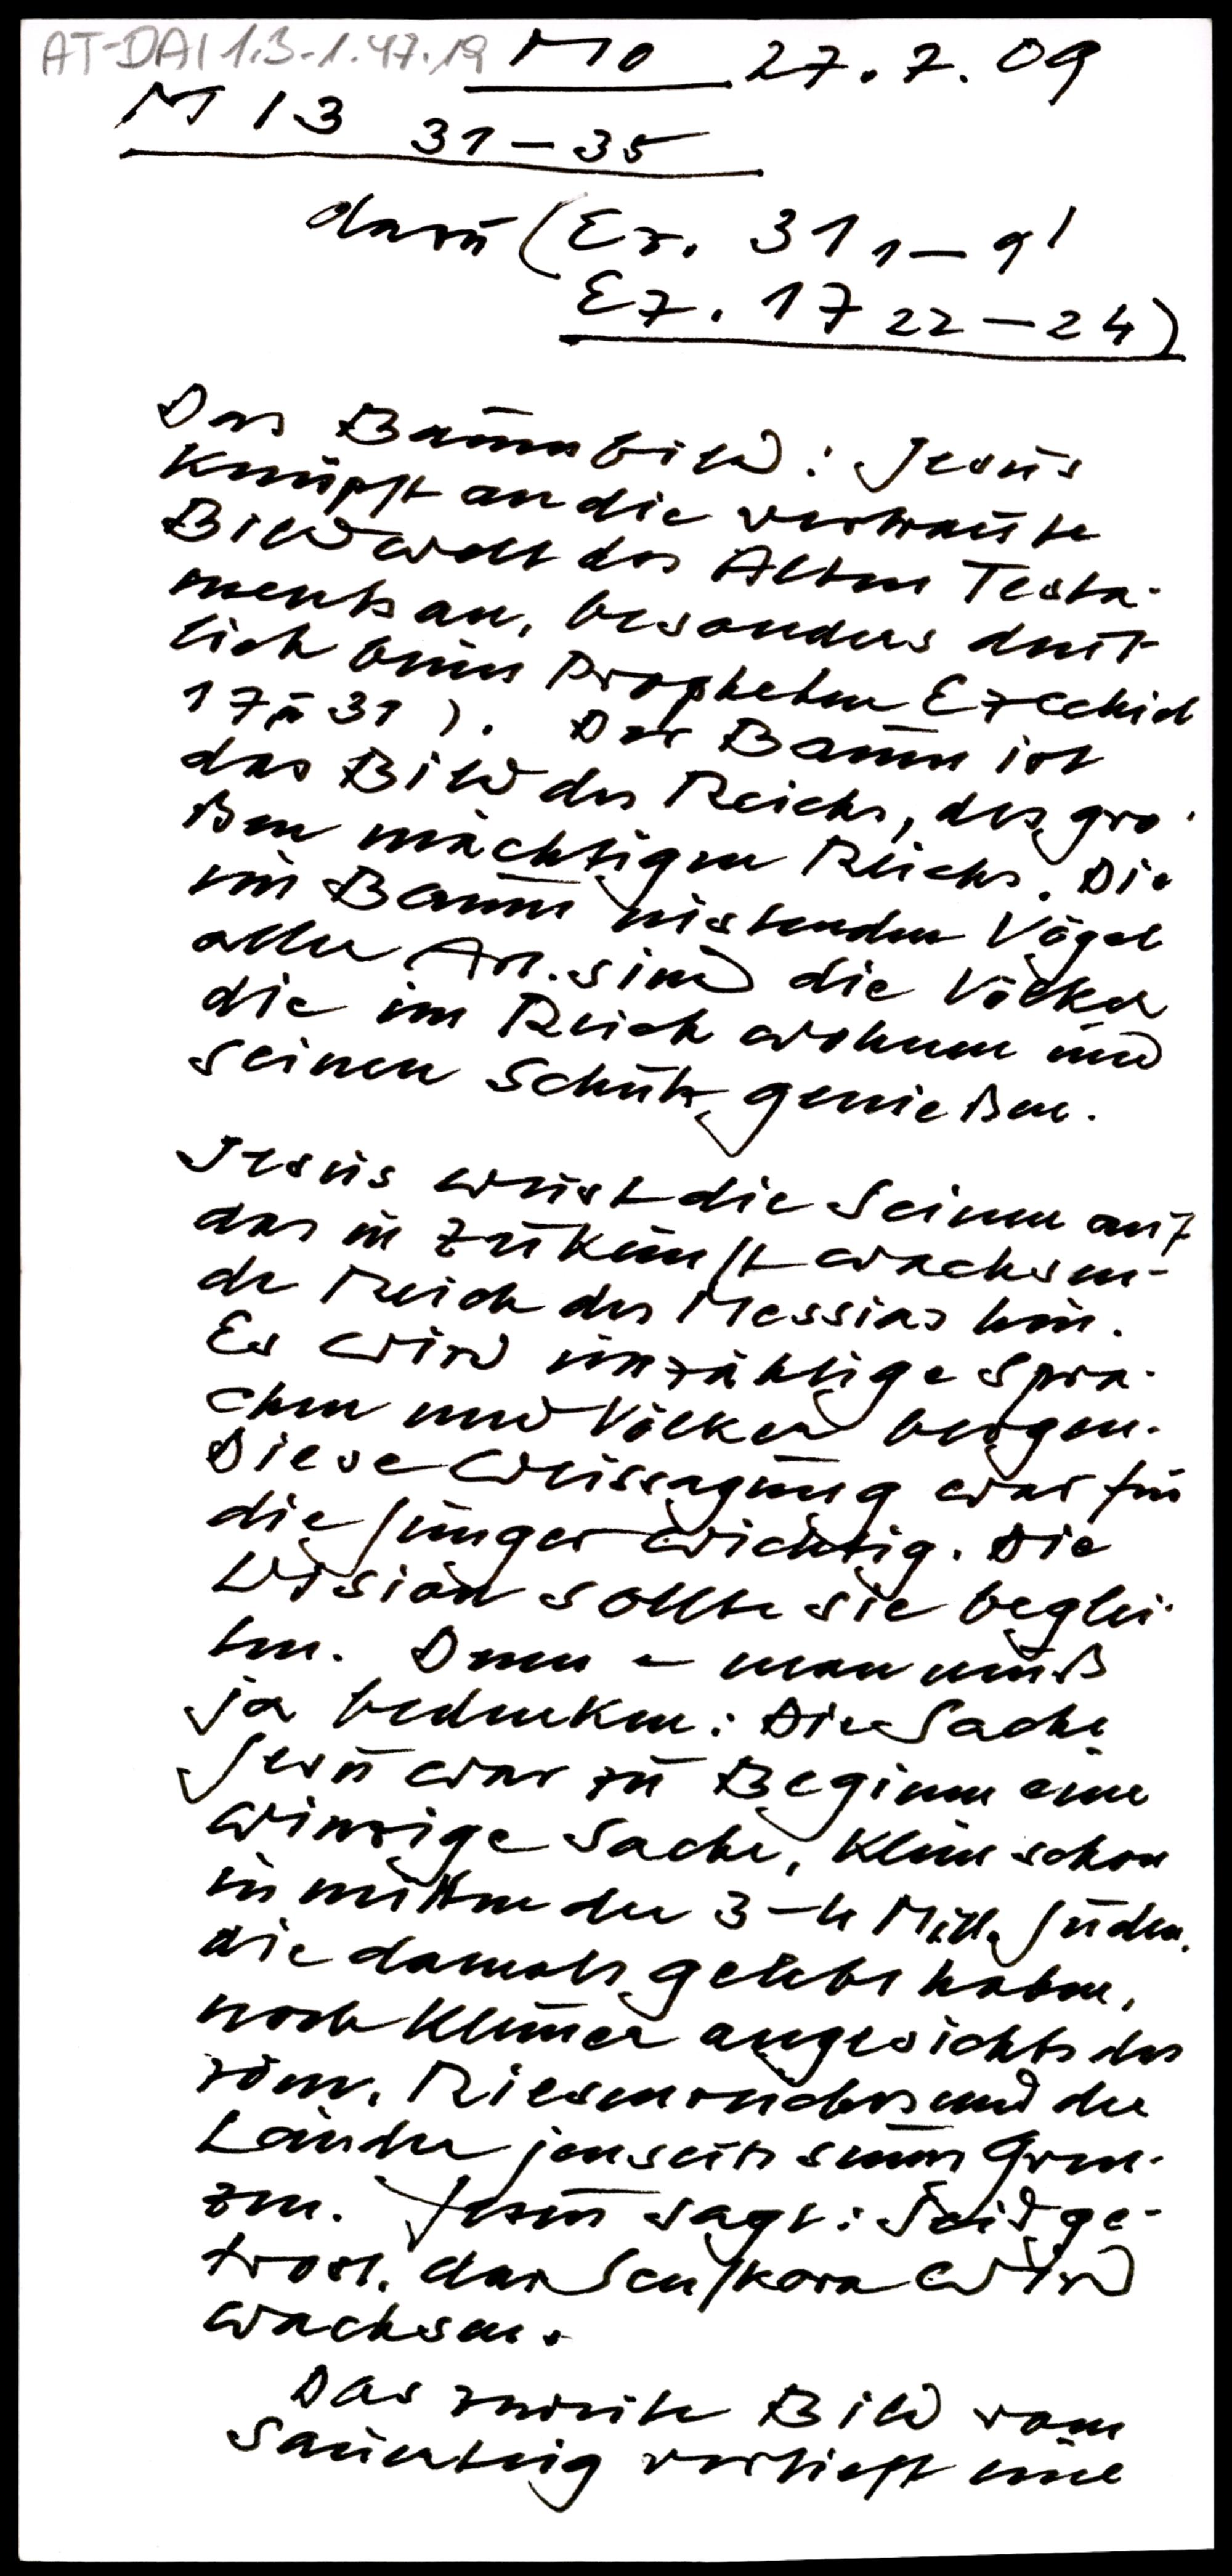 AT-DAI 1.3-1.47.19 Mo 27.7.09
M 13 31-35
dazu (Ez. 31 1-9!
Ez. 17 22-24)
Das Baumbild: Jesus
knüpft an die vertraute
Bildwelt des Alten Testa-
ments an, besonders deut-
lich beim Propheten Ezechiel
17 u 31). Der Baum ist
das Bild des Reichs, des gro-
ßen mächtigen Reichs. Die
im Baum nistenden Vögel
aller Art. sind die Völker
die im Reich wohnen und
seinen Schutz genießen.
Jesus weist die Seinen auf
das in Zukunft wachsen-
de Reich des Messias hin.
Es wird unzählige Spra-
chen und Völker bergen.
Diese Weissagung war für
die Jünger wichtig. Die
Vision sollte sie beglei-
ten. Denn - man muß
ja bedenken: Die Sache
Jesu war zu Beginn eine
winzige Sache, klein schon
inmitten der 3-4 Mill. Juden,
die damals gelebt haben,
noch kleiner angesichts des
röm. Riesenreiches und der
Länder jenseits seiner Gren-
zen. Jesus sagt: Seid ge-
trost, das Senfkorn wird
wachsen.
Das zweite Bild vom
Sauerteig vertieft eine